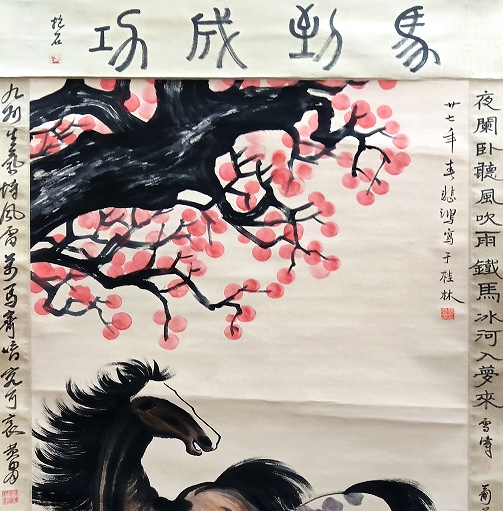 馬到成功
抱石
夜闌卧聽風吹雨鐵馬冰河入夢來 雪濤
廿七年春悲鴻寫于桂林
九州生氣恃風雷萬馬齊喑究可哀 黄胄